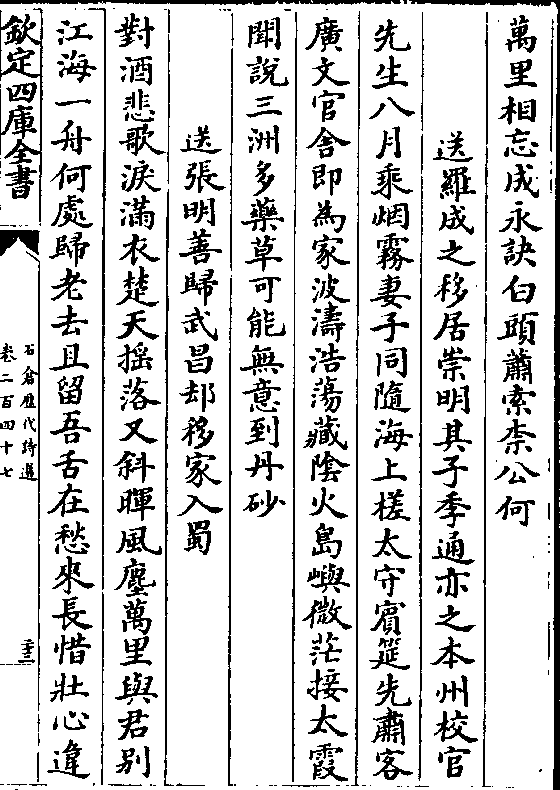 萬里相忘成永訣白頭蕭索柰公何
送羅成之移居崇明其子季通亦之本州校官
先生八月乘烟霧妻子同隨海上槎太守賓筵先肅客
廣文官舍即為家波濤浩蕩藏陰火島嶼微茫接太霞
聞說三洲多藥草可能無意到丹砂
送張明善歸武昌却移家入蜀
對酒悲歌淚滿衣楚天揺落又斜暉風塵萬里與君别
江海一舟何處歸老去且留吾舌在愁來長惜壯心違
欽定四庫全書
石倉歴代詩選
卷二百四十七